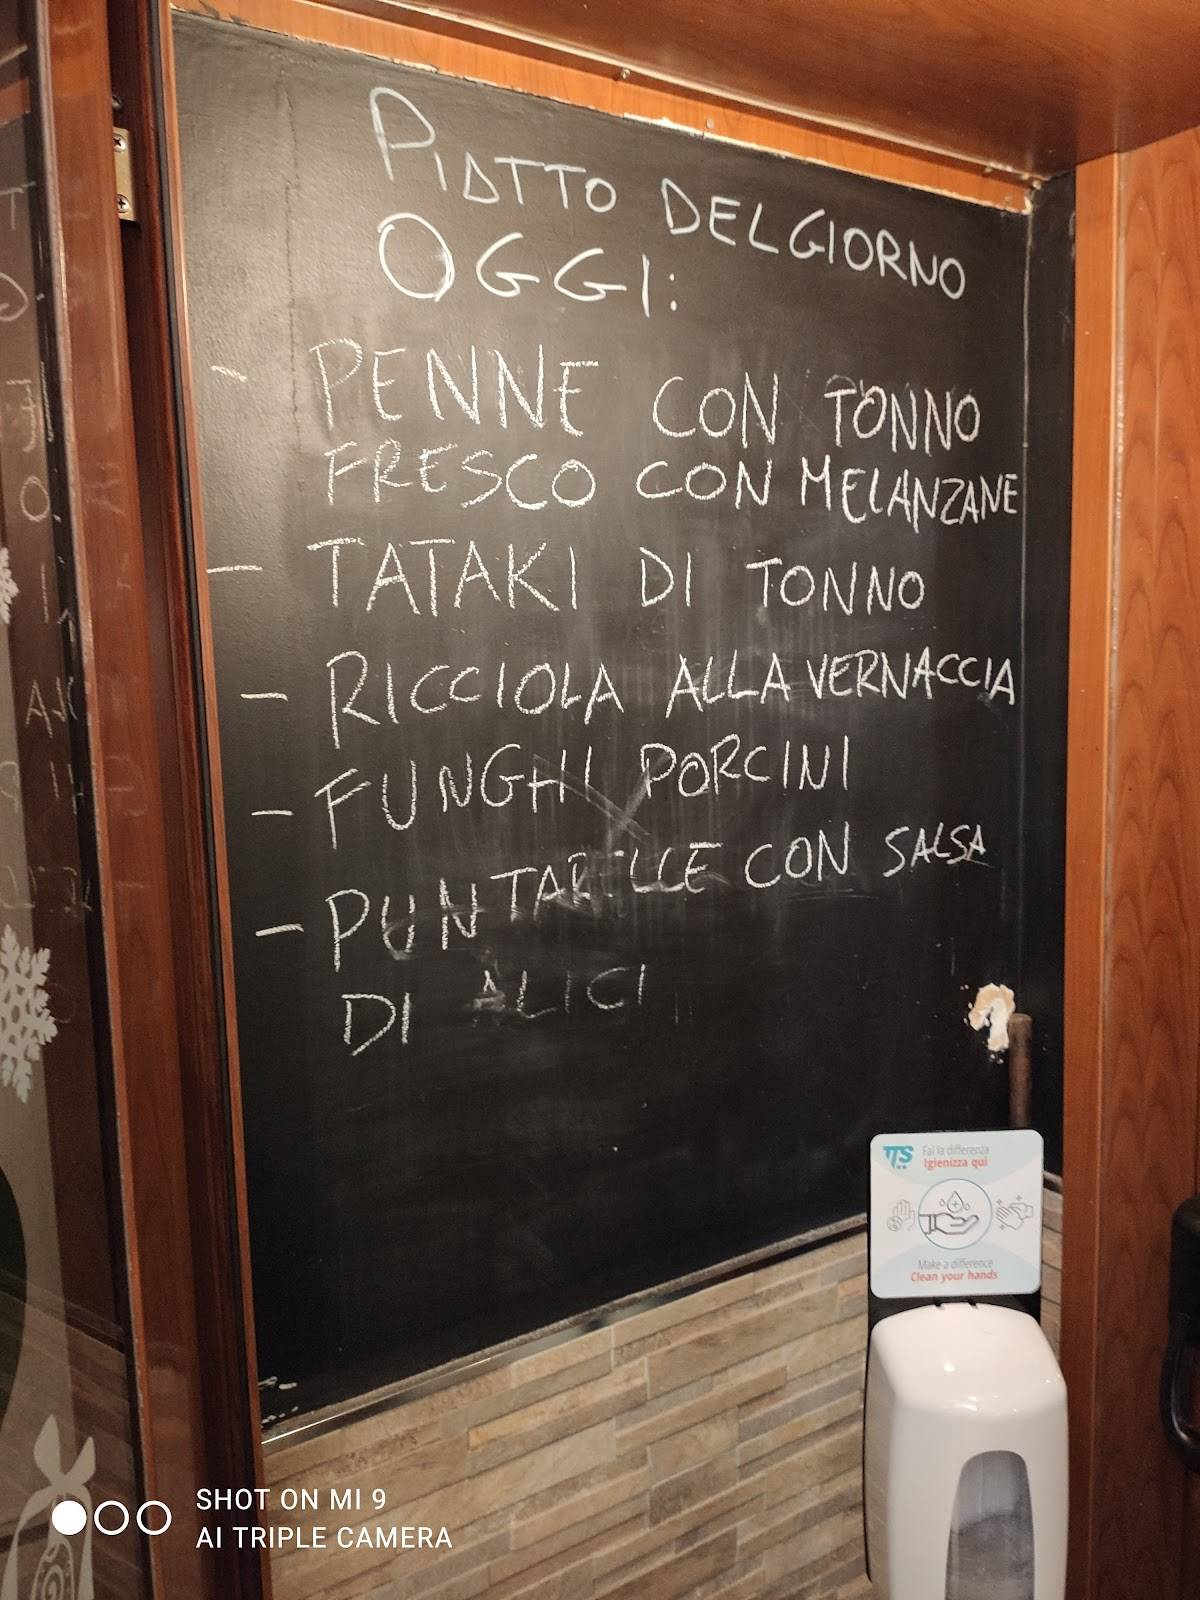 PIATTO DEL GIORNO
OGGI:
- PENNE CON TONNO
FRESCO CON MELANZANE
- TATAKI DI TONNO
- RICCIOLA ALLA VERNACCIA
- FUNGHI PORCINI
- PUNTARELLE CON SALSA
DI ALICI
TTS
Fai la differenza
Igienizza qui
Make a difference
Clean your hands
SHOT ON MI 9
AI TRIPLE CAMERA